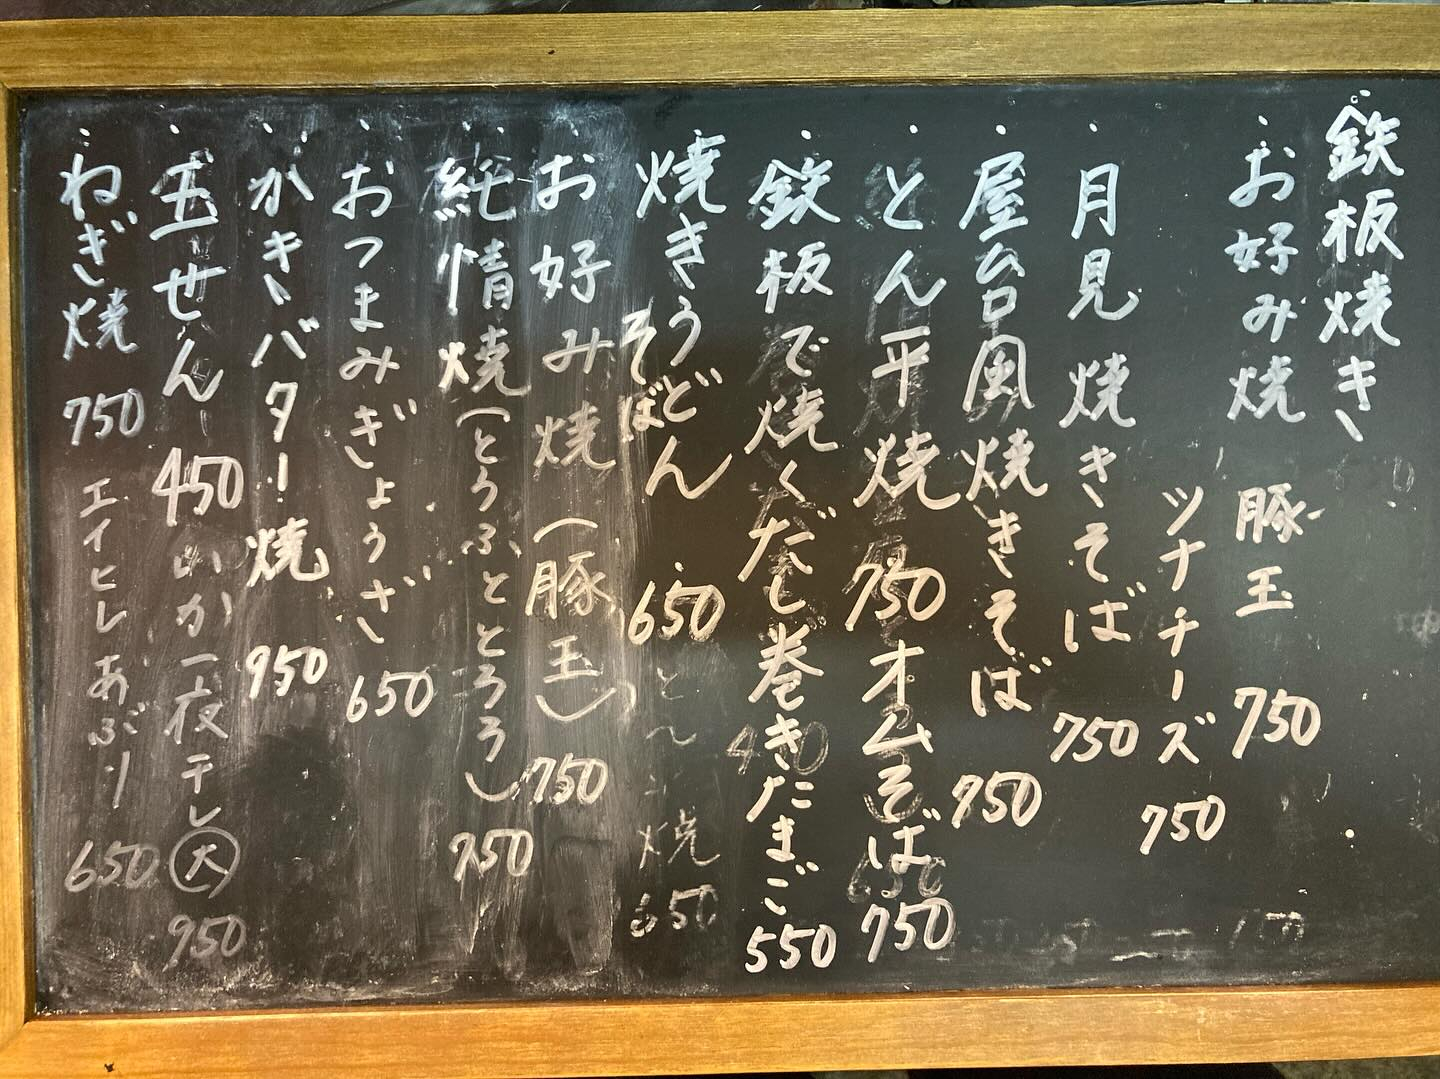 鉄板焼き
・お好み焼 豚玉 750
ツナチーズ 750
・月見焼きそば 750
・屋台風焼きそば 750
・とん平焼 750 オムそば 750
・鉄板で焼くだし巻きたまご 550
・焼きうどん 650
そばどん
焼 650
・お好み焼(豚玉) 750
・純情焼(とうふととろろ) 750
・おつまみぎょうざ 650
・かきバター焼 950
・玉せん 450 いか一夜干し 大 950
・ねぎ焼 750 エイヒレあぶり 650